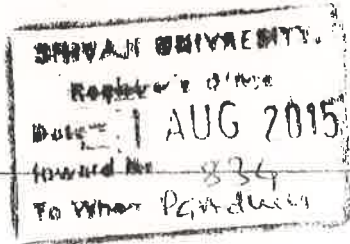 SHIVAJI UNIVRESITY.
Registrar's Office
Date 1 AUG 2015
Inward No 834
To Whom